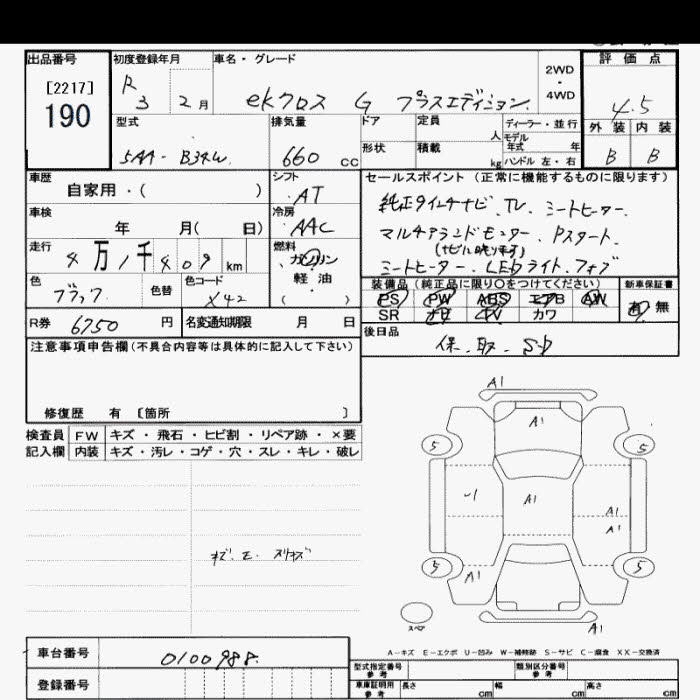 出品番号 初度登録年月 車名・グレード 評価点
[2217]
190
R 3 2月
ekクロス G プラスエディション
2WD
・
4WD
4.5
型式 排気量 ドア 定員 人 ディーラー・並行 外装 内装
モデル
年式 年
5AA-B34W 660cc 形状 積載 kg ハンドル 左・右 B B
車歴 シフト セールスポイント(正常に機能するものに限ります)
自家用・( ) AT
純正9インチナビ. TV. シートヒーター.
車検 冷房
年 月( 日) AAC
マルチアラウンドモニター. Pスタート.
走行 燃料
4万1千409km ガソリン
軽油
( )
シートヒーター. LEDライト. フォグ
色 色替 色コード
ブラック X42
装備品(純正品に限り○をつけてください) 新車保証書
PS PW ABS エアB AW
SR ナビ TV カワ
有 無
R券 6750円 名変通知期限 月 日
後日品
保. 取. SD
注意事項申告欄(不具合内容等は具体的に記入して下さい)
修復歴 有 [箇所 ]
検査員 FW キズ・飛石・ヒビ割・リペア跡・×要
記入欄 内装 キズ・汚レ・コゲ・穴・スレ・キレ・破レ
A1
A1
5 5
-1 A1 A1
A1
5 A1 5
A1
スペア
A-キズ E-エクボ U-凹み W-補修跡 S-サビ C-腐食 XX-交換済
車台番号 0100988.
登録番号
型式指定番号
参考
類別区分番号
参考
車庫証明用
参考
長さ cm 幅 cm 高さ cm